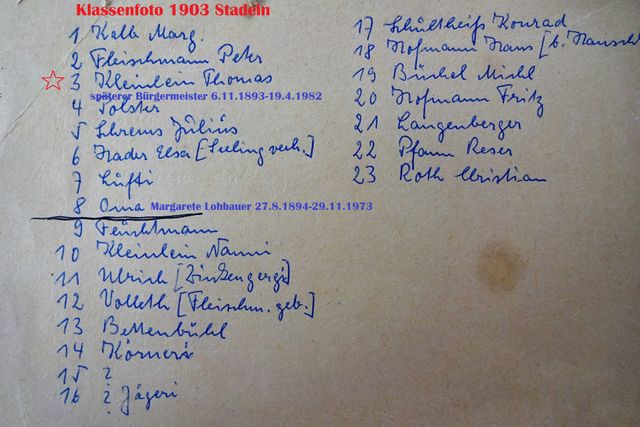 Klassenfoto 1903 Stadeln
1 Kalb Marg.
2 Fleischmann Peter
3 Kleinlein Thomas
späterer Bürgermeister 6.11.1893-19.4.1982
4 Polster
5 Schrems Julius
6 Hader Elsa [Seeling verh.]
7 Lufti
8 Oma Margarete Lohbauer 27.8.1894-29.11.1973
9 Feuchtmann
10 Kleinlein Nanni
11 Ulrich
12 Volleth [Fleischm. geb.]
13 Bettenbühl
14 Körner
15 ?
16 ? Jägeri
17 Schultheiß Konrad
18 Hofmann Hans
19 Büchel Michl
20 Hofmann Fritz
21 Langenberger
22 Pfann Reser
23 Roth Christian